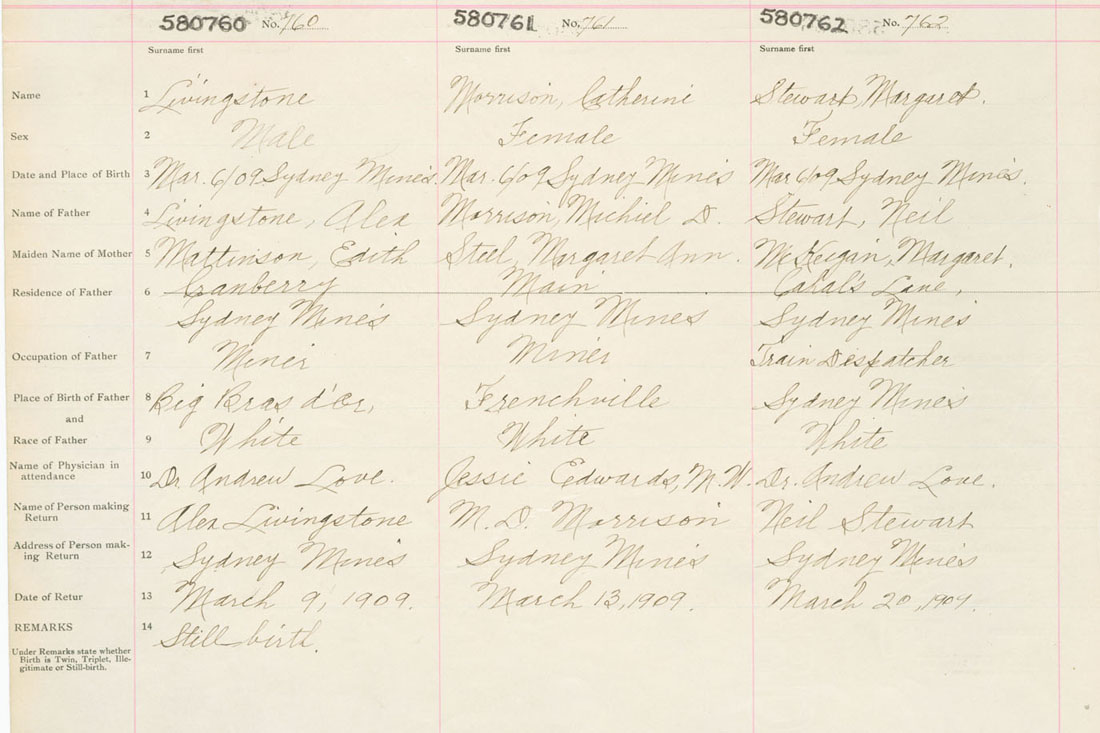 580760 No. 760 580761 No. 761 580762 No. 762
Surname first Surname first Surname first
Name 1 Livingstone Morrison, Catherine Stewart, Margaret.
Sex 2 Male Female Female
Date and Place of Birth 3 Mar. 6/09 Sydney Mines. Mar. 6/09 Sydney Mines Mar 6/09 Sydney Mines.
Name of Father 4 Livingstone, Alex Morrison, Michiel D. Stewart, Neil
Maiden Name of Mother 5 Mattinson, Edith Steel, Margaret Ann. McKeigan, Margaret.
Cranberry Main Lane,
Residence of Father 6
Sydney Mines Sydney Mines Sydney Mines
Occupation of Father 7 Miner Miner Train Despatcher
Place of Birth of Father 8 Big Bras d'Or, Frenchville Sydney Mines
and
Race of Father 9 White White White
Name of Physician in
attendance 10 Dr. Andrew Love. Jessie Edwards, M.W. Dr. Andrew Love.
Name of Person making
Return 11 Alex Livingstone M. D. Morrison Neil Stewart
Address of Person mak-
ing Return 12 Sydney Mines Sydney Mines Sydney Mines
Date of Retur 13 March 9, 1909. March 13, 1909. March 20, 1909.
REMARKS 14 Still birth.
Under Remarks state whether
Birth is Twin, Triplet, Ille-
gitimate or Still-birth.